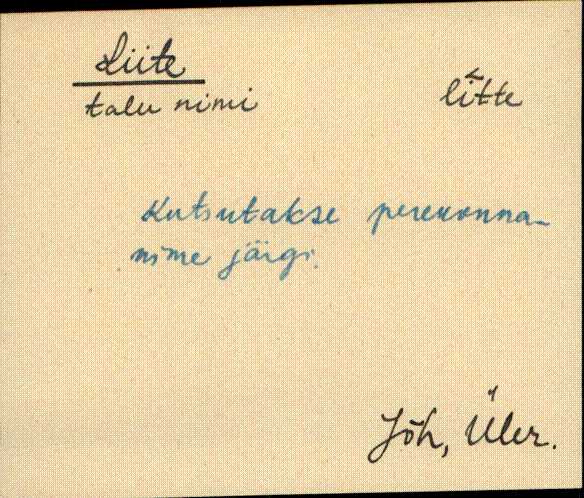 Liite
talu nimi
litte
Kutsutakse perekonna-
nime järgi.
Jõh, Üler.